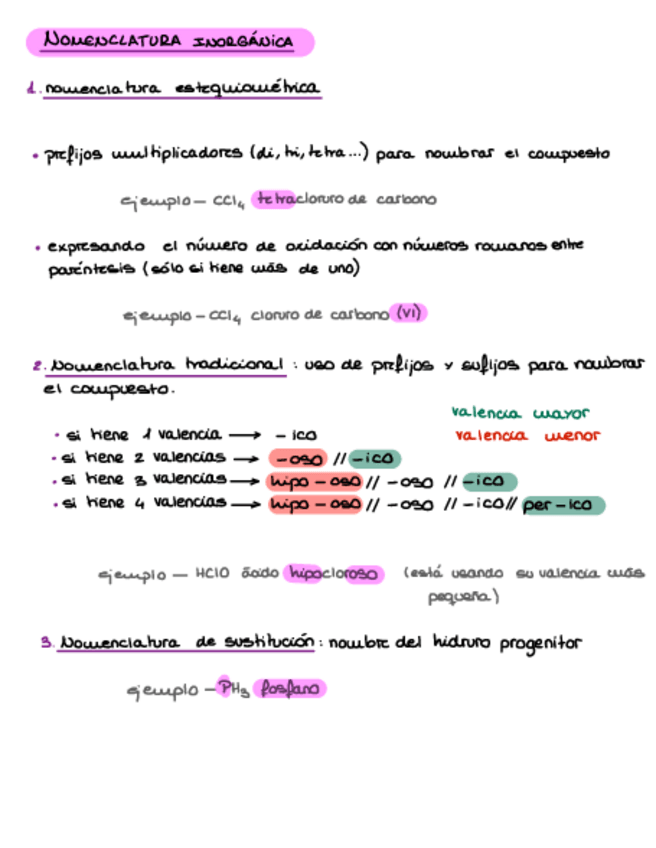 NOMENCLATURA INORGÁNICA
1. nomenclatura estequiométrica
• prefijos multiplicadores (di, tri, tetra...) para nombrar el compuesto
ejemplo – CCl₄ tetracloruro de carbono
• expresando el número de oxidación con números romanos entre
paréntesis (sólo si tiene más de uno)
ejemplo – CCl₄ cloruro de carbono (VI)
2. Nomenclatura tradicional : uso de prefijos y sufijos para nombrar
el compuesto.
valencia mayor
• si tiene 1 valencia → – ico
valencia menor
• si tiene 2 valencias → – oso // – ico
• si tiene 3 valencias → hipo – oso // – oso // – ico
• si tiene 4 valencias → hipo – oso // – oso // – ico // per – ico
ejemplo – HClO ácido hipocloroso (está usando su valencia más
pequeña)
3. Nomenclatura de sustitución : nombre del hidruro progenitor
ejemplo – PH₃ fosfano